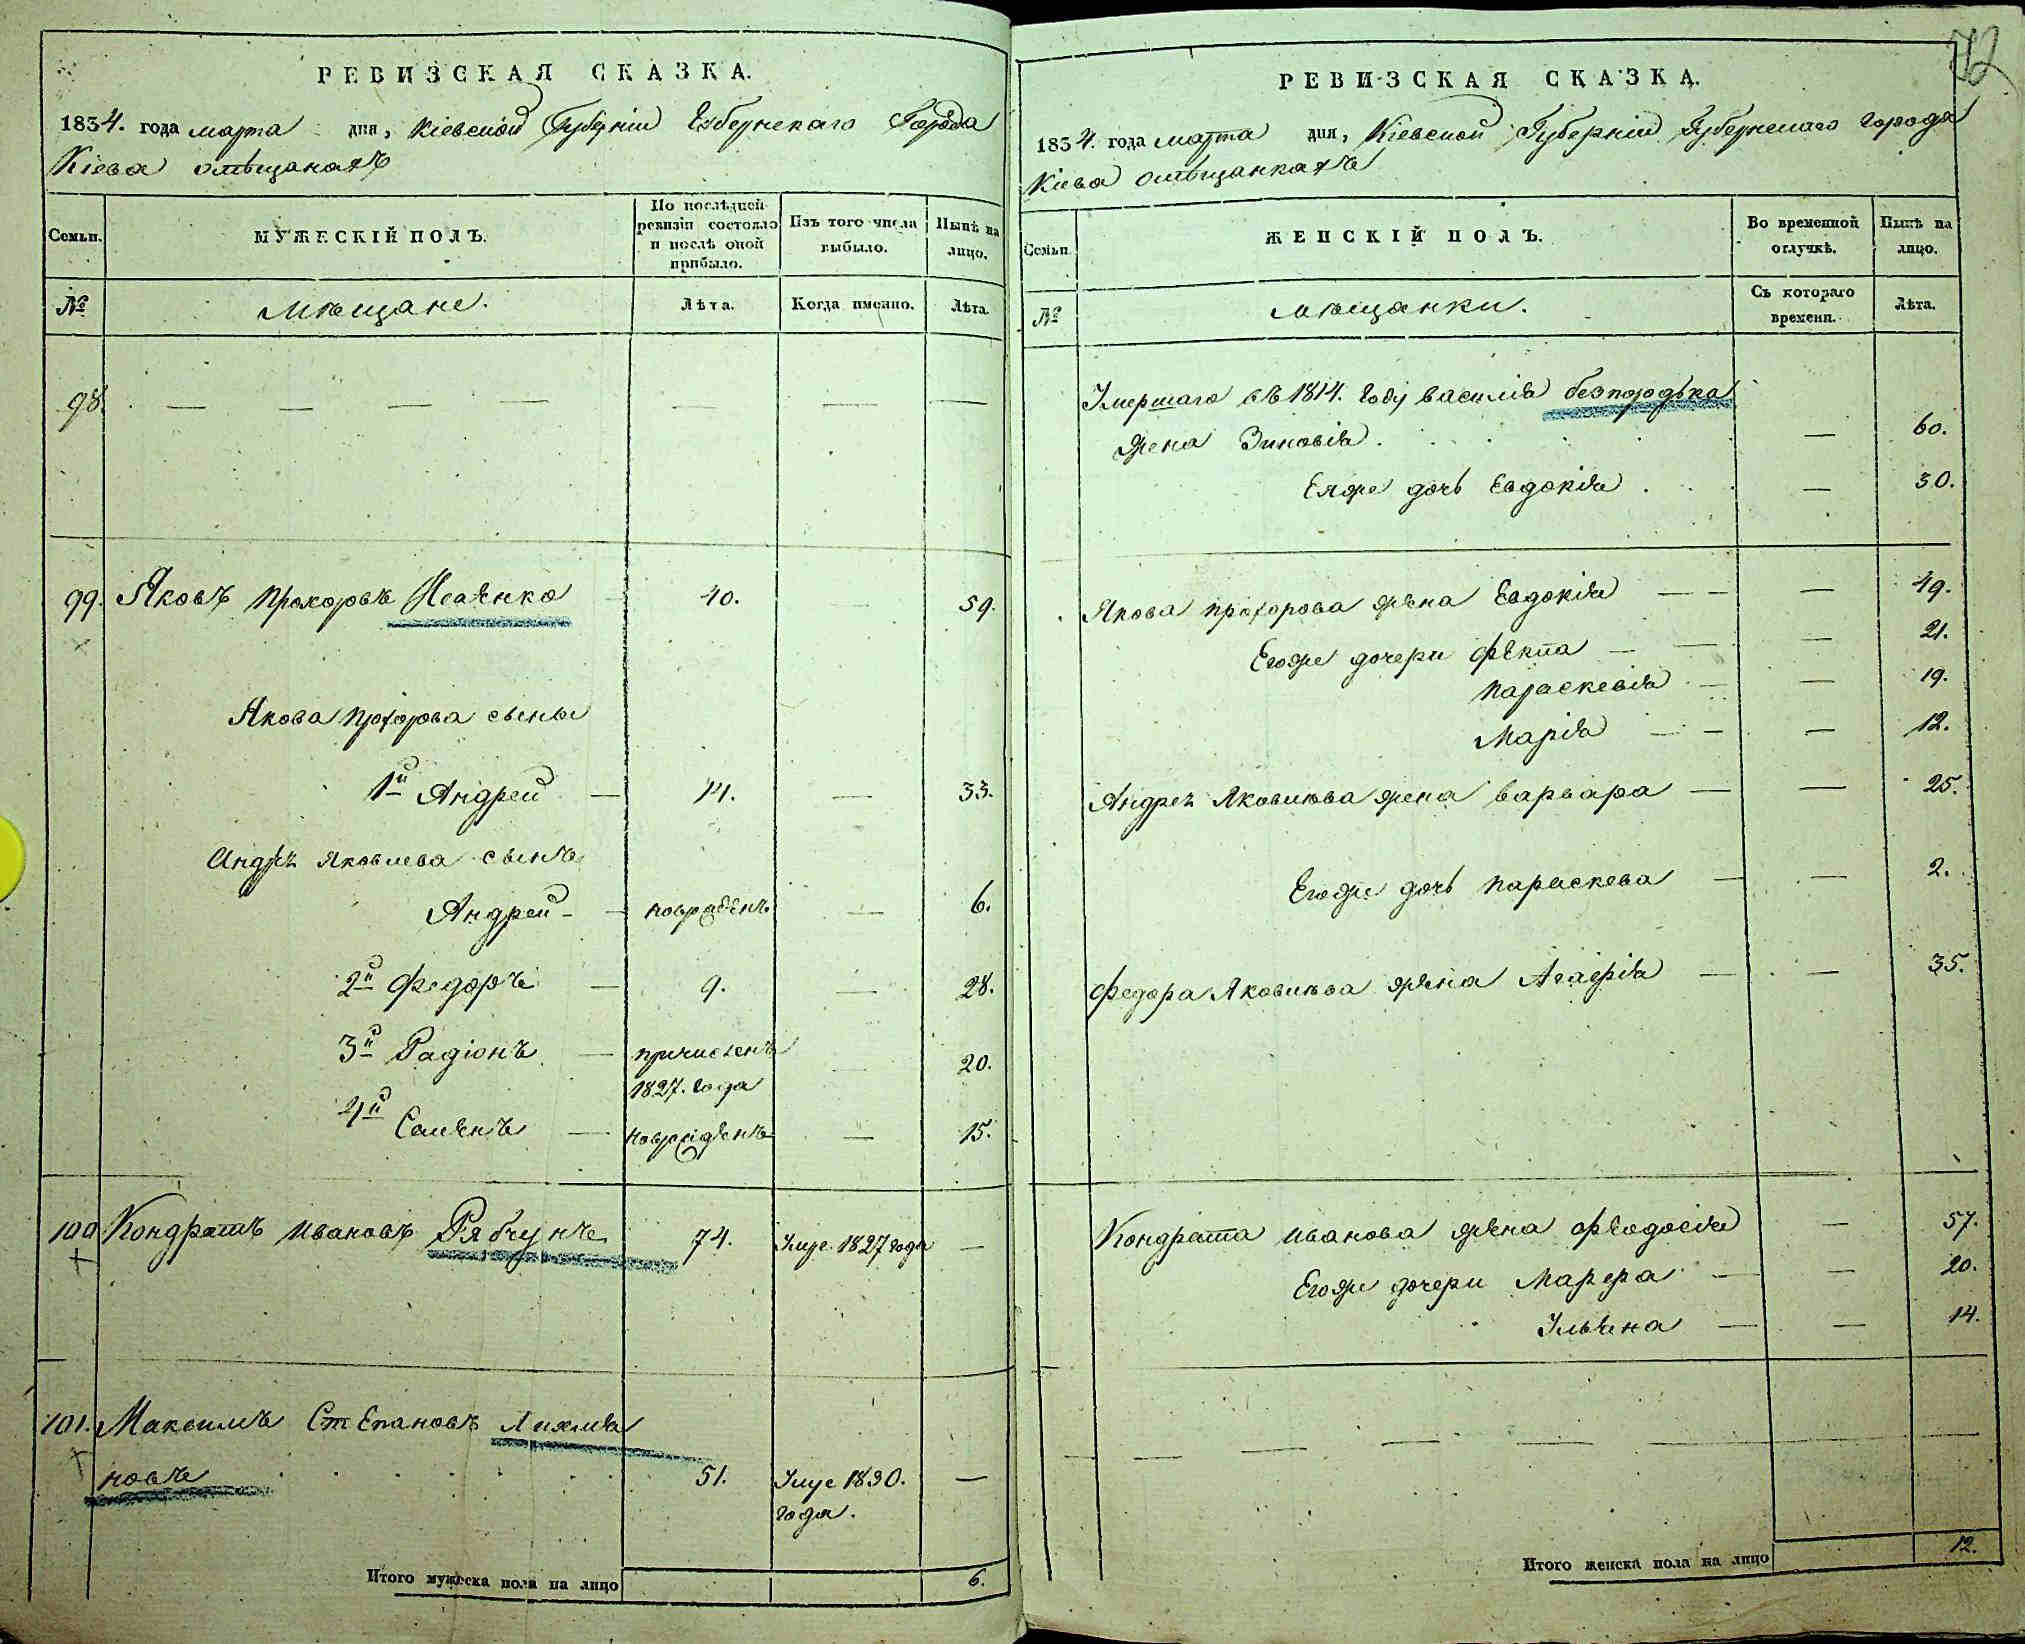 72
РЕВИЗСКАЯ СКАЗКА.
1834. года марта дня, Кіевской Губерніи Губернскаго Города
Кіева омѣщанахъ
Семьи.
МУЖЕСКІЙ ПОЛЪ.
По послѣдней ревизіи состояло и послѣ оной прибыло.
Изъ того числа выбыло.
Нынѣ на лицо.
№
Мѣщане.
Лѣта.
Когда именно.
Лѣта.
98.
99. Яковъ Прохоровъ 40. 59.
Якова Прохорова сыны
1й Андрей 14. 33.
Андрея Яковлева сынъ
Андрей новрожденъ 6.
2й Федоръ 9. 28.
3й Радіонъ причисленъ 1827. года 20.
4й Семенъ новрожденъ 15.
100 Кондратъ Ивановъ Рябчунъ 74. Умре 1827 года
101. Максимъ Степановъ
новъ 51. Умре 1830. года.
Итого мужеска пола на лицо 6.
РЕВИЗСКАЯ СКАЗКА.
1834. года марта дня, Кіевской Губерніи Губернскаго города
Кіева омѣщанкахъ
Семьи
ЖЕНСКІЙ ПОЛЪ.
Во временной отлучкѣ.
Нынѣ на лицо.
№
мѣщанки.
Съ котораго времени.
Лѣта.
Умершаго въ 1814. году василія безпородька
жена Зиновія. 60.
Еяже дочь Евдокія 30.
Якова прохорова жена Евдокія 49.
Егоже дочери Фекла 21.
Параскевія 19.
Марія 12.
Андрея Яковлева жена варвара 25.
Егоже дочь параскева 2.
Федора Яковлева жена Агафія 35.
Кондрата иванова жена Феодосія 57.
Егоже дочери Марфа 20.
Ульяна 14.
Итого женска пола на лицо 12.